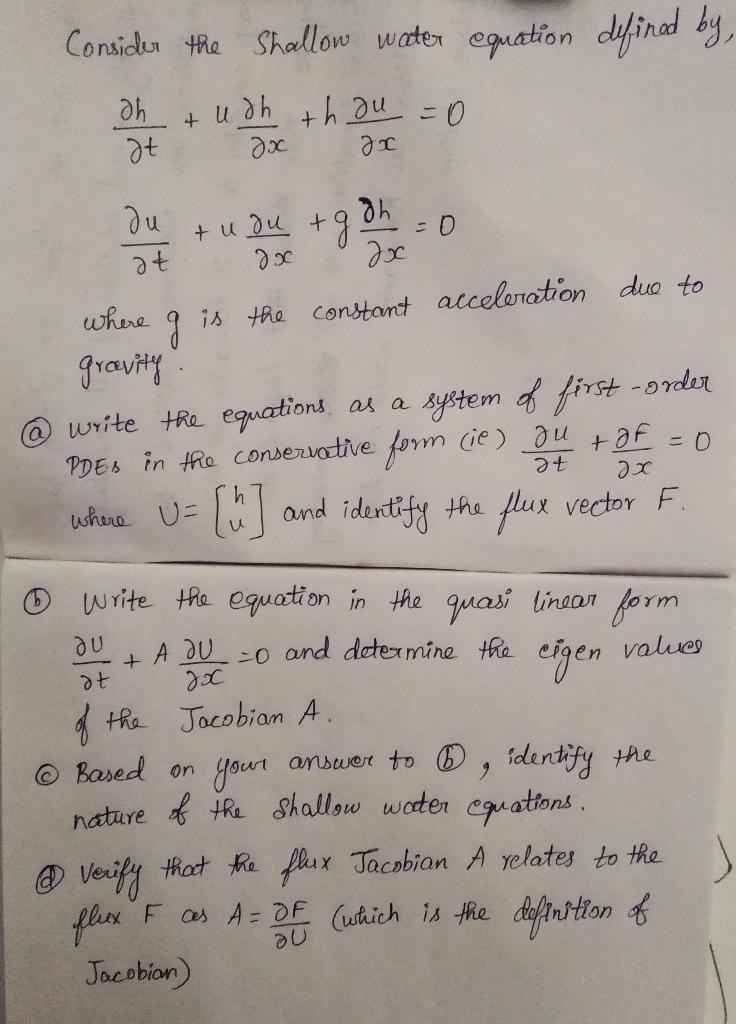 Consider the Shallow water equation defined by,
∂h/∂t + u ∂h/∂x + h ∂u/∂x = 0
∂u/∂t + u ∂u/∂x + g ∂h/∂x = 0
where g is the constant acceleration due to
gravity.
(a) write the equations as a system of first-order
PDEs in the conservative form (ie) ∂u/∂t + ∂F/∂x = 0
where U = [h u] and identify the flux vector F.
(b) Write the equation in the quasi linear form
∂U/∂t + A ∂U/∂x = 0 and determine the eigen values
of the Jacobian A.
(c) Based on your answer to (b), identify the
nature of the Shallow water equations.
(d) Verify that the flux Jacobian A relates to the
flux F as A = ∂F/∂U (which is the definition of
Jacobian)